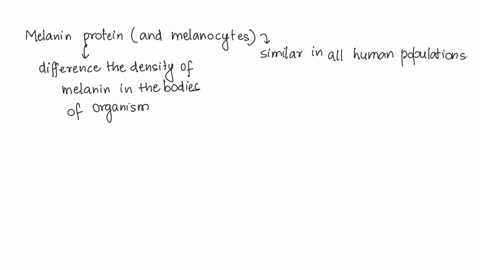 Melanin protein (and melanocytes)
similar in all human populations.
difference the density of
melanin in the bodies
of organism